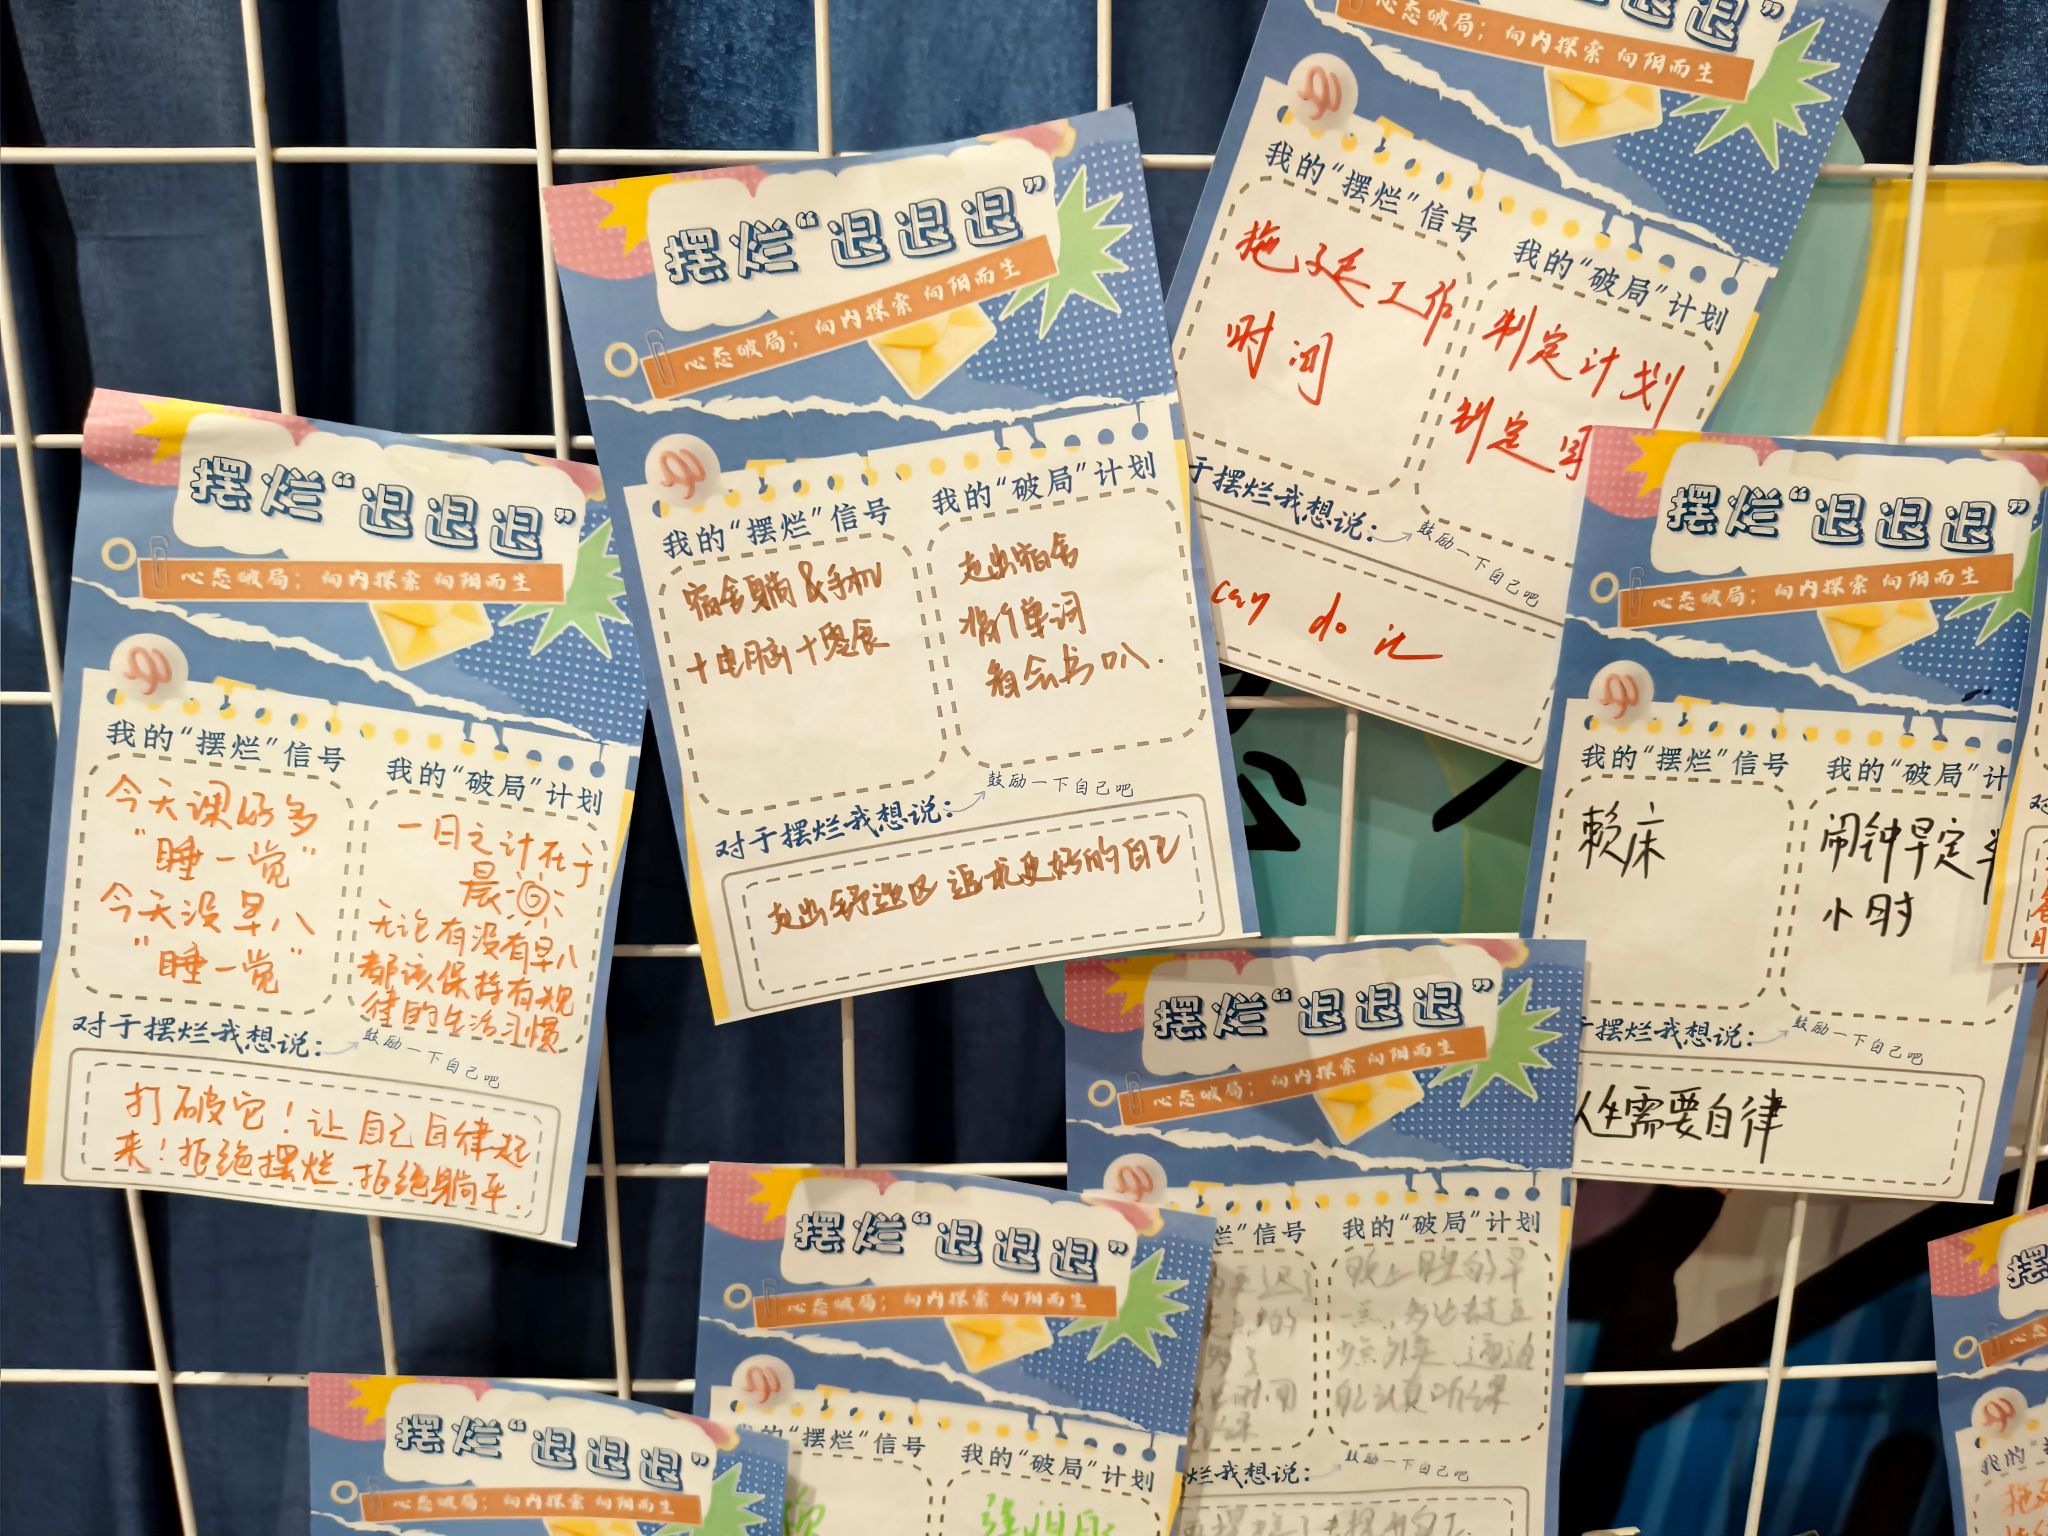 摆烂“退退退”
心态破局；向内探索 向阳而生
我的“摆烂”信号
今天课好多
“睡一觉”
今天没早八
“睡一觉”
我的“破局”计划
一日之计在于
晨
无论有没有早八
都该保持有规
律的生活习惯
对于摆烂我想说：
鼓励一下自己吧
打破它！让自己自律起
来！拒绝摆烂.拒绝躺平.
摆烂“退退退”
心态破局；向内探索 向阳而生
我的“摆烂”信号
宿舍躺&手机
+电脑+零食
我的“破局”计划
走出宿舍
单词
看会书叭.
对于摆烂我想说：
鼓励一下自己吧
走出舒适区 追求更好的自己
心态破局；向内探索 向阳而生
我的“摆烂”信号
拖延工作
时间
我的“破局”计划
制定计划
制定
于摆烂我想说：
鼓励一下自己吧
can do it
摆烂“退退退”
心态破局；向内探索 向阳而生
我的“摆烂”信号
赖床
我的“破局”计
闹钟早定半
小时
摆烂我想说：
鼓励一下自己吧
人生需要自律
摆烂“退退退”
心态破局；向内探索 向阳而生
烂”信号
我的“破局”计划
晚上睡的早
一点,
自己认真听课
烂我想说：
鼓励一下自己吧
摆烂“退退退”
心态破局；向内探索 向阳而生
的“摆烂”信号
我的“破局”计划
摆烂“退退退”
心态破局；向内探索 向阳而生
摆
心态
我的“